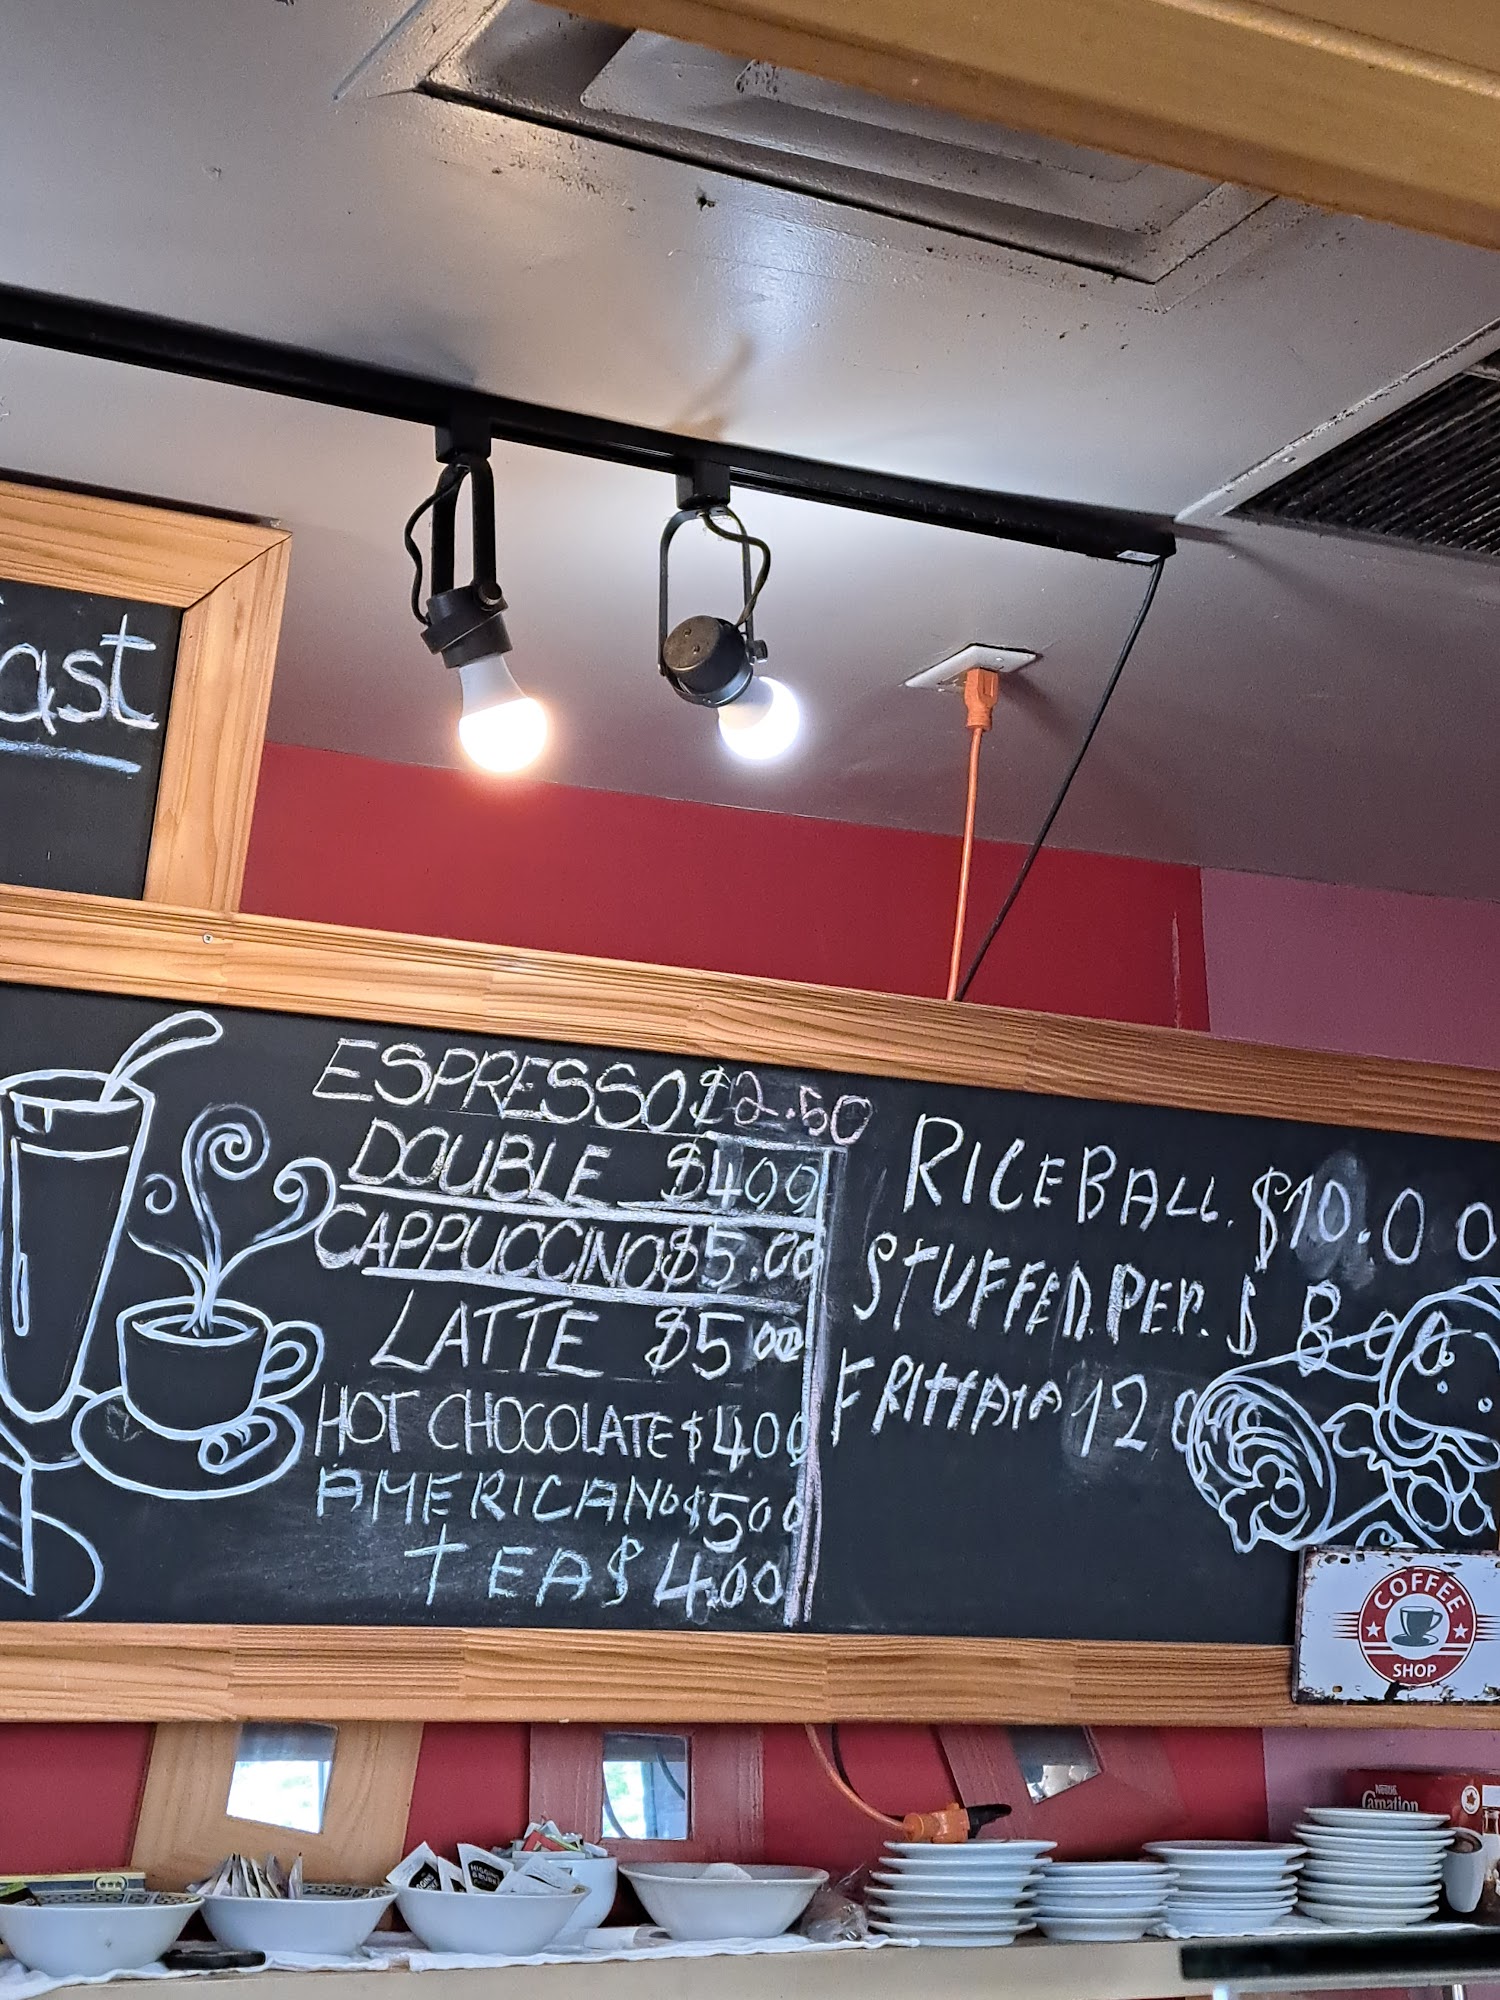 ast
ESPRESSO $2.50
DOUBLE $400
CAPPUCCINO $5.00
LATTE $5 00
HOT CHOCOLATE $400
AMERICANO $500
TEA $ 4.00
RICEBALL. $10.00
STUFFED. PEP. $ 8.00
FRITTATA 12
COFFEE
SHOP
Nestlé
Carnation
HIGGINS
& BURKE